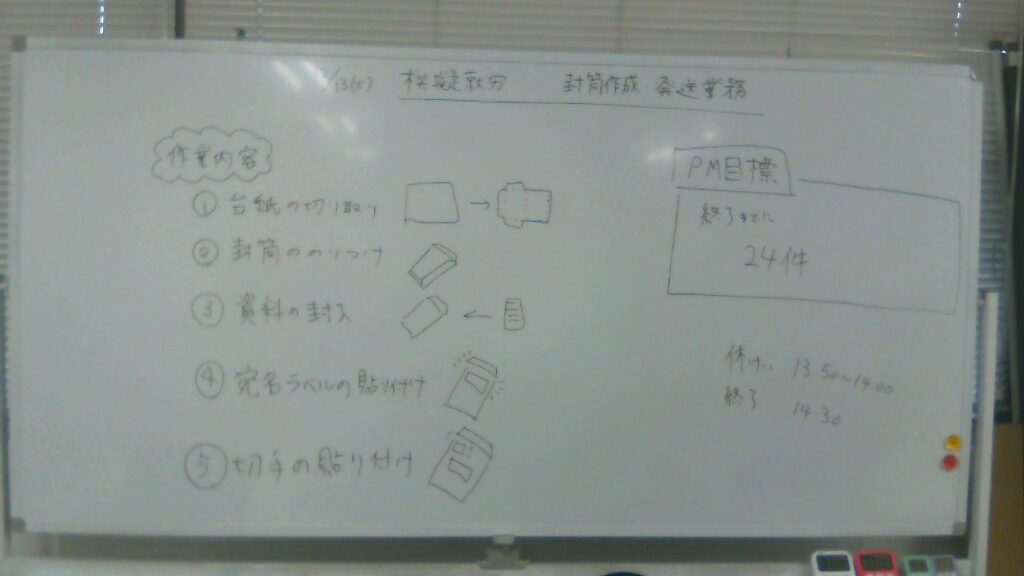 /13(火) 模擬就労 封筒作成 発送業務
作業内容
① 台紙の切り取り
② 封筒ののりつけ
③ 資料の封入
④ 宛名ラベルの貼り付け
⑤ 切手の貼り付け
PM目標
終了までに
24件
休けい 13 50〜14:00
終了 14 30